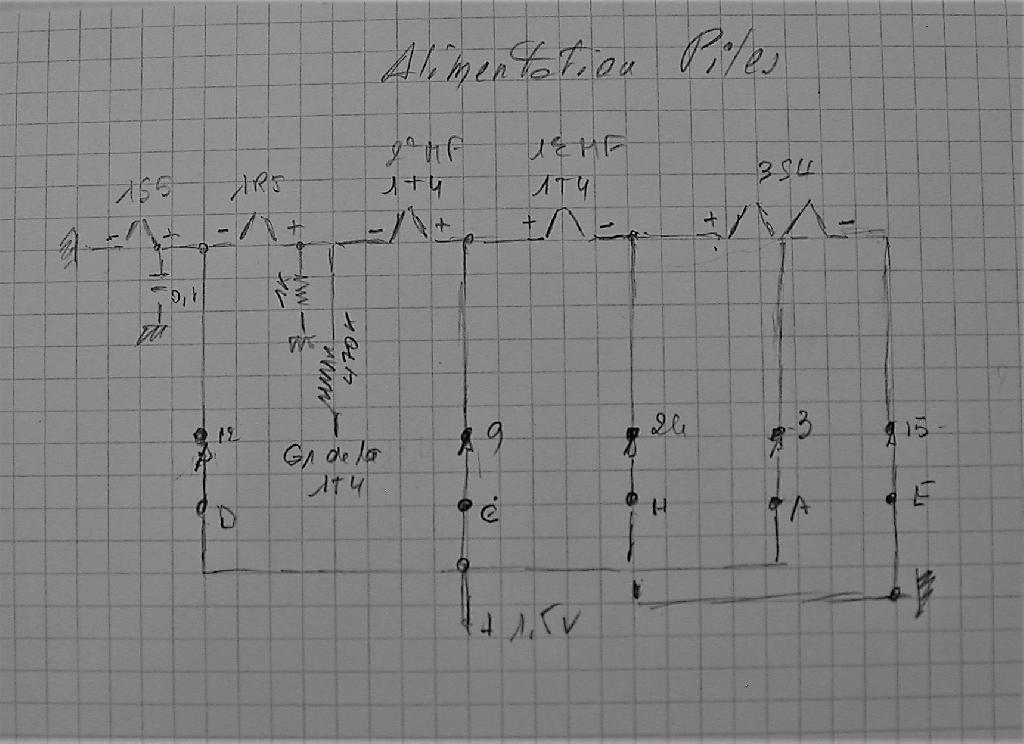 Alimentation Piles
2e HF 1e HF
1S5 1R5 1T4 1T4 3S4
- + - + - + + - + -
0,1 1K 470K
12 9 24 3 15
Gr de la
1T4
D C H A E
+ 1,5V